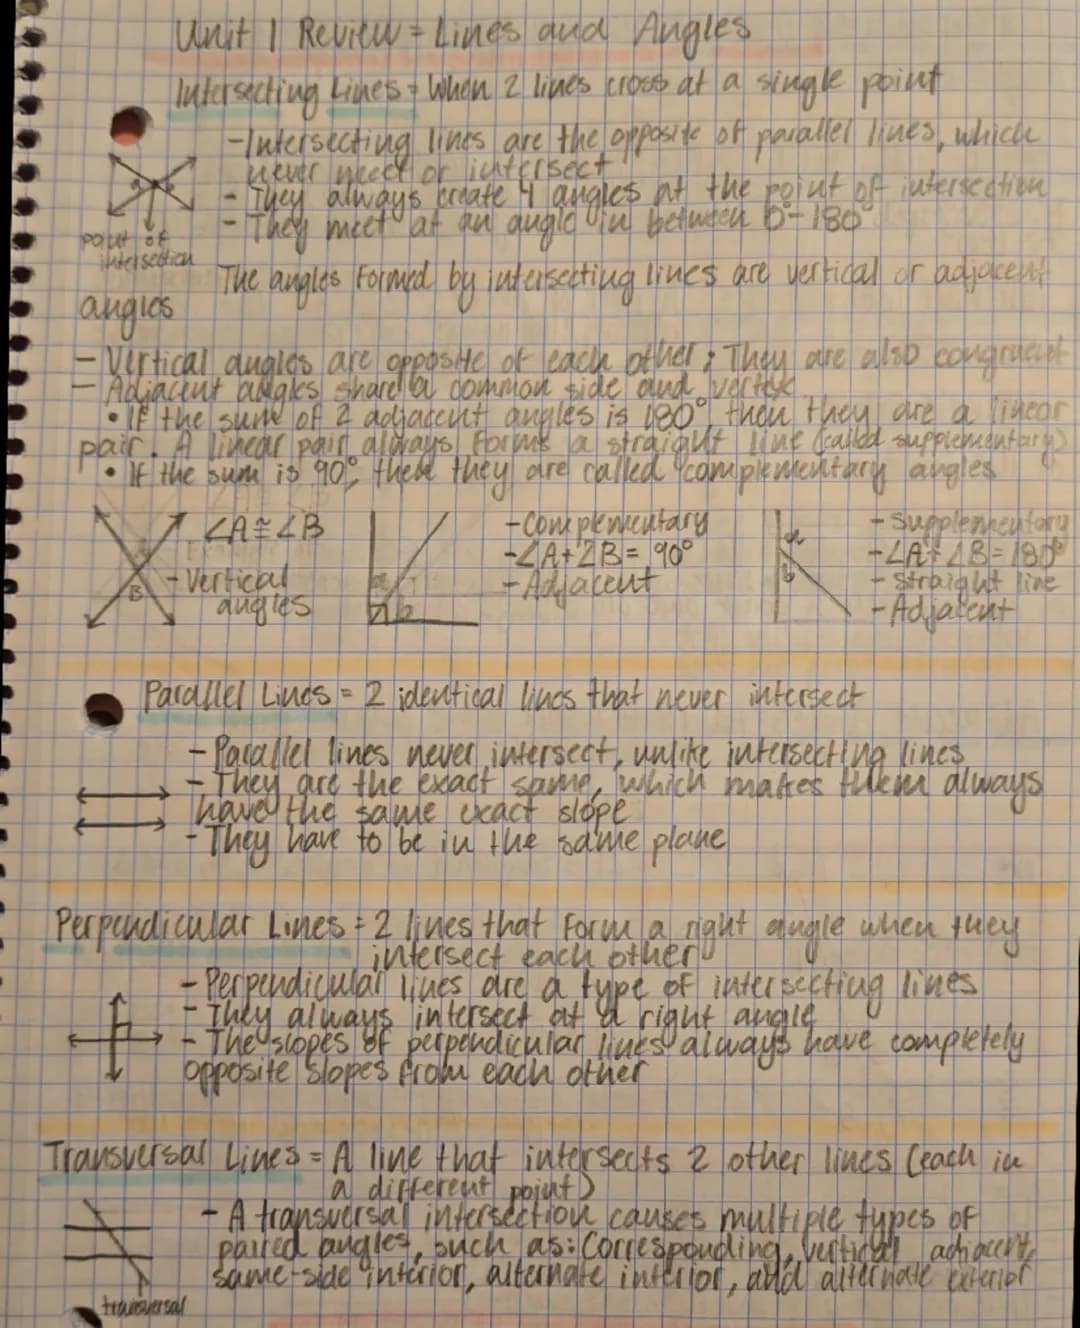 Unit 1 Review = Lines and Angles
Intersecting Lines = When 2 lines cross at a single point
- Intersecting lines are the opposite of parallel lines, which
never meet or intersect
- They always create 4 angles at the point of intersection
- They meet at an angle in between 0°-180°
point of
intersection
The angles formed by intersecting lines are vertical or adjacent
angles
- Vertical angles are opposite of each other; They are also congruent
- Adjacent angles share a common side and vertex
• If the sum of 2 adjacent angles is 180° then they are a linear
pair. A linear pair always forms a straight line (called supplementary)
• If the sum is 90°, then they are called complementary angles
∠A≅∠B
- Vertical
angles
B
a
b
- Complementary
- ∠A+∠B= 90°
- Adjacent
a
b
- Supplementary
- ∠A+∠B=180°
- Straight line
- Adjacent
Parallel Lines = 2 identical lines that never intersect
- Parallel lines never intersect, unlike intersecting lines
- They are the exact same, which makes them always
have the same exact slope
- They have to be in the same plane
Perpendicular Lines = 2 lines that form a right angle when they
intersect each other
- Perpendicular lines are a type of intersecting lines
- They always intersect at a right angle
- The slopes of perpendicular lines always have completely
opposite slopes from each other
Transversal Lines = A line that intersects 2 other lines (each in
a different point)
- A transversal intersection causes multiple types of
paired angles, such as: Corresponding, vertical, adjacent,
same-side interior, alternate interior, and alternate exterior
transversal